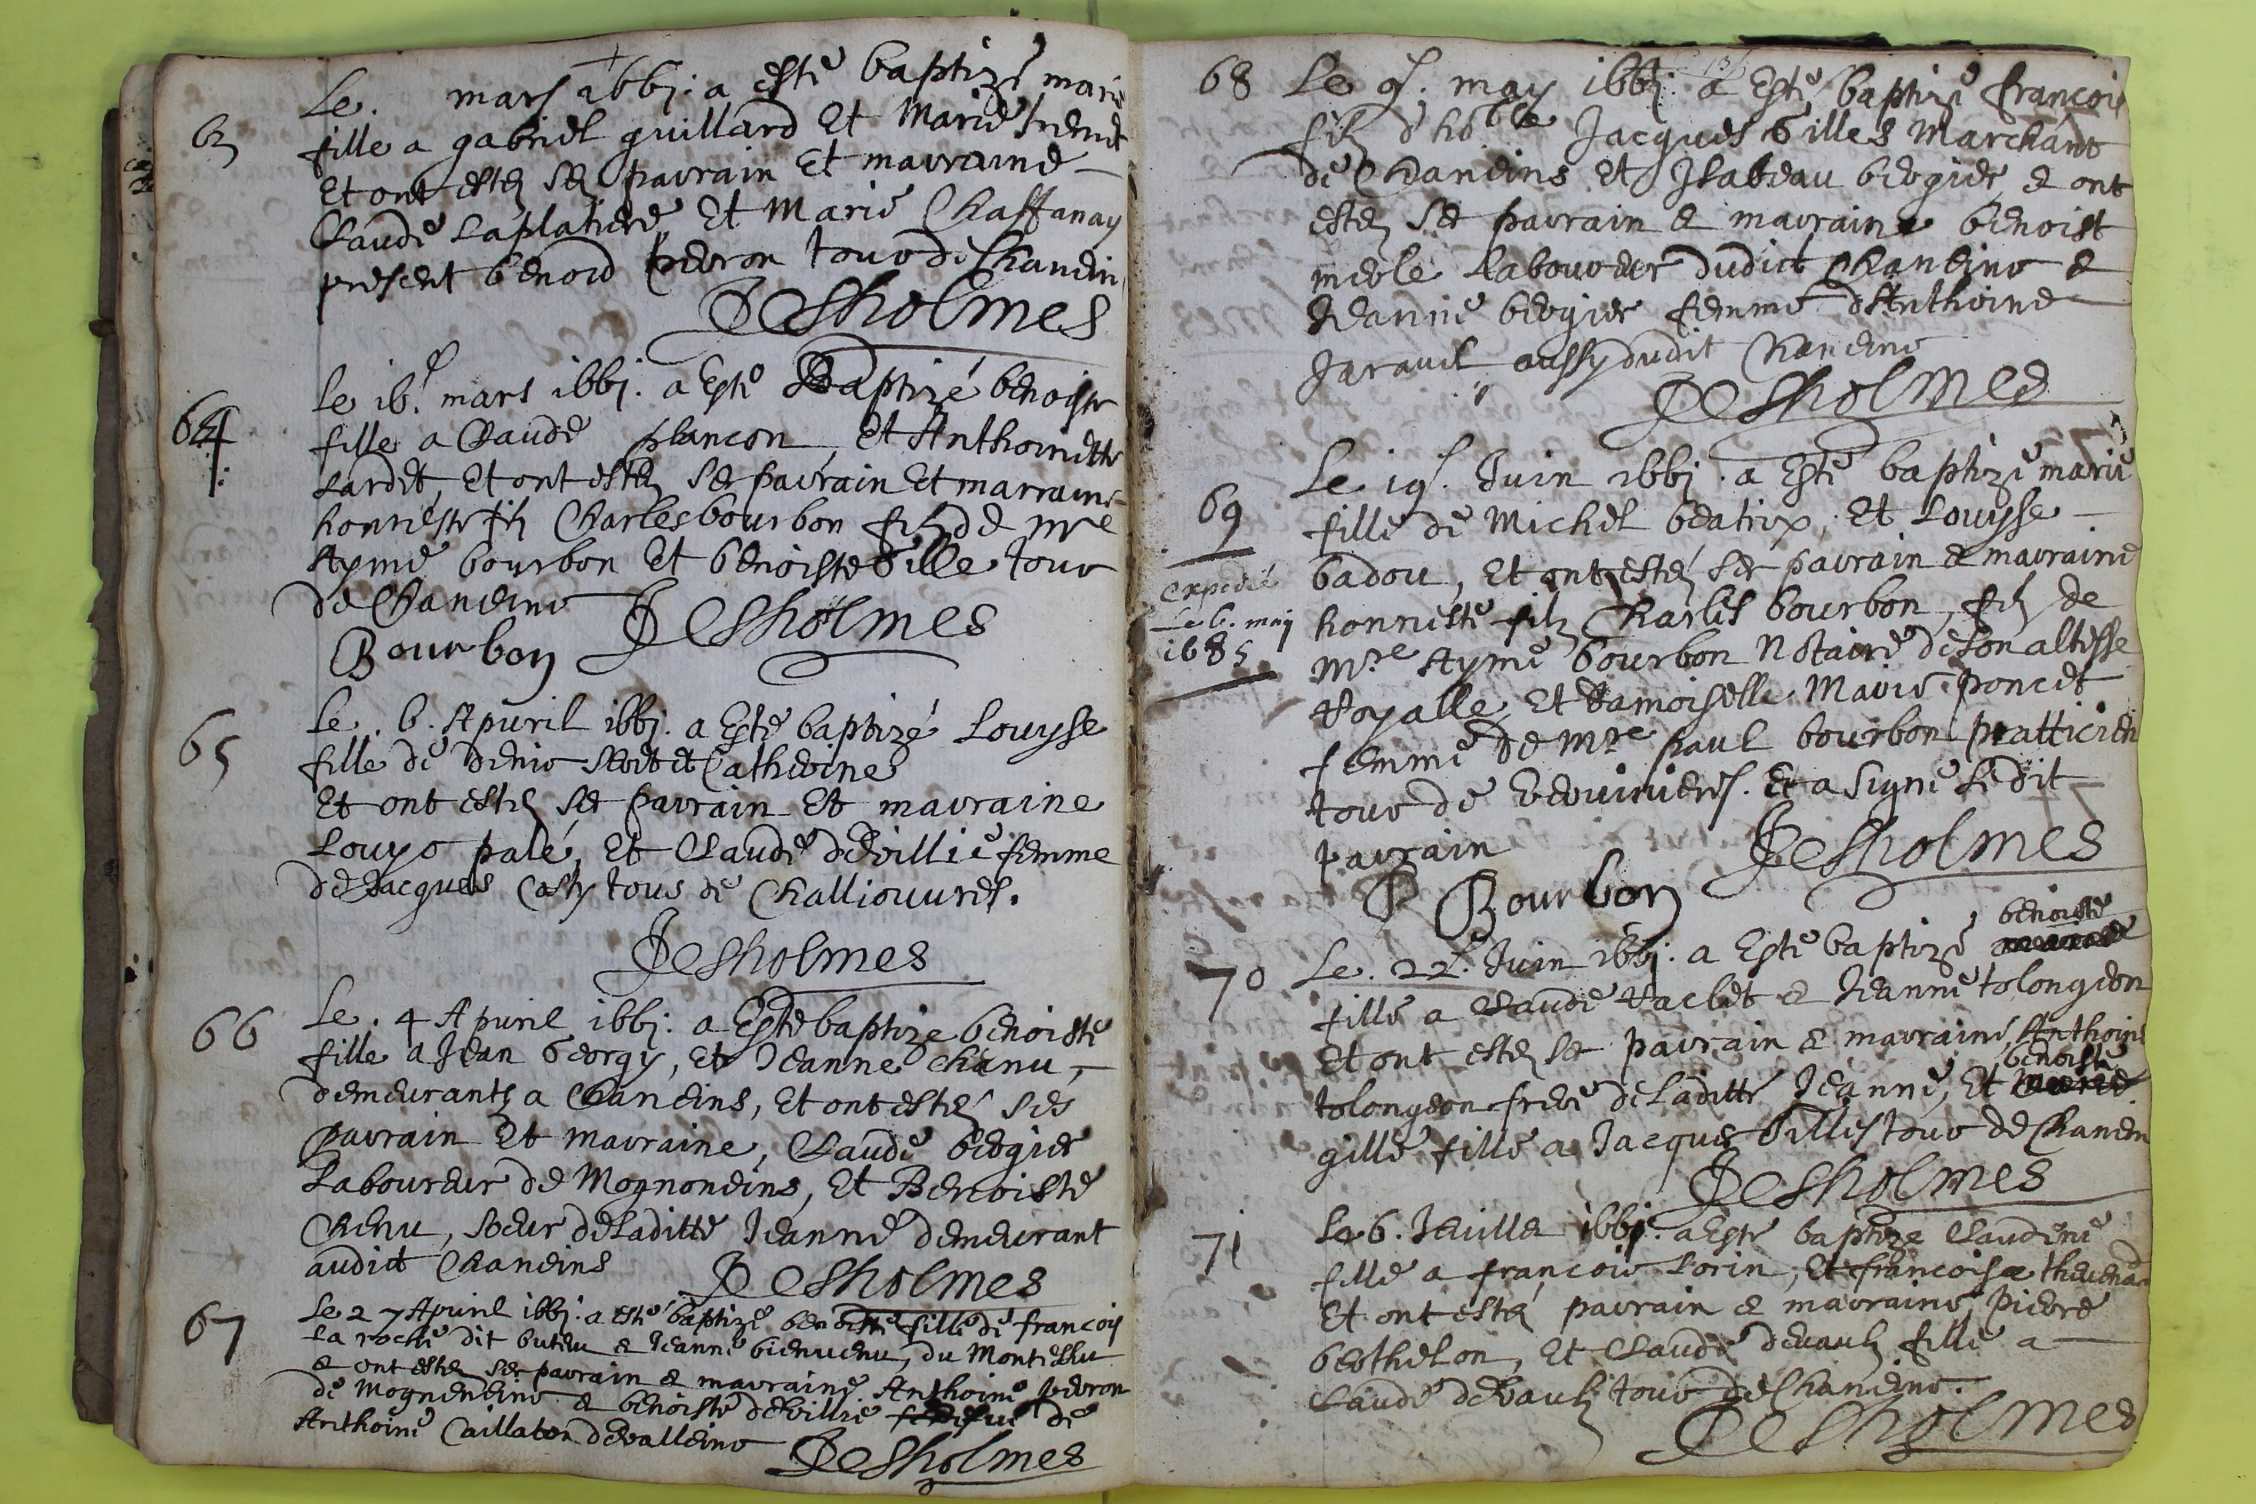 63
Le. mars 1661. a esté baptizé marie
fille a gabriel guillard Et Marie
Et ont estez ses parrain Et marraine
Claude Laplatiere Et Marie Chaffanay
present benoid perron tous de Chaneins
Desholmes
64
Le 16e. mars 1661. a Esté Baptizé benoiste
fille a Claude plancon, Et Anthoinette
Lardet, Et ont estez ses parrain Et marraine
honneste filz Charles bourbon filz de Mre
Aymé bourbon Et benoiste Gille tous
de Chaneins Desholmes
Bourbon
65
Le. 6. Apvril 1661. a Esté baptizé Louyse
fille de denis et Catherine
Et ont estez ses parrain Et marraine
Louys palé, Et Claude devillie femme
de Jacques Caty tous de Challiouvres.
Desholmes
66
Le. 4 Apvril 1661. a Esté baptizé benoiste
fille a Jean Georgy, Et Jeanne chanu,
demeurants a Chaneins, Et ont estéz ses
parrain Et marraine, Claude bergier
Laboureur de Mognoneins, Et Benoiste
Chenu, soeur de Laditte Jeanne demeurant
audict Chaneins Desholmes
67
Le 27 Apvril 1661. a esté baptizé benoiste fille de francois
La roche dit buteu & Jeanne bienvenu, du Montelhu
& ont estez ses parrain & marraine. Anthoine perron
de Mogneneins & benoiste devillie de
Anthoine Caillaton de valleins Desholmes
68
Le 9e. may 1661. a Esté baptizé francois
filz d'hoble Jacques Gilles Marchant
de Chaneins Et Isabeau bergier, & ont
estez ses parrain & marraine benoist
merle Laboureur dudict Chaneins &
Jeanne bergier femme d'Anthoine
Jaravel aussy dudit Chaneins
Desholmes
69
Le 19e. Juin 1661. a Esté baptizé marie
fille de Michel beatrix, Et Louysse
badou, Et ont estéz ses parrain & marraine
expedié
Le 6. may
1685
honneste filz Charles bourbon, filz de
Mre Aymé bourbon Notaire de son altesse
Royalle, Et damoiselle Marie poncet
femme de Mre paul bourbon pratticien
tous de. Et a signé Ledit
parrain Desholmes
Bourbon
70
Le. 22e. Juin 1661. a Esté baptizé benoiste
fille a Claude Vaclet & Jeanne tolongeon
Et ont estez ses parrain & marraine, Anthoine
tolongeon frere de Laditte Jeanne, Et benoiste
gille fille a Jacques Gilles tous de Chaneins
Desholmes
71
Le 6. Jeuillet 1661. a Esté baptizé Claudine
fille a francois Lorin, Et francoise thevenard
Et ont estéz parrain & marraine, Pierre
berthelon, Et Claude devaulz fille a
Claude devaulz tous de Chaneins.
Desholmes